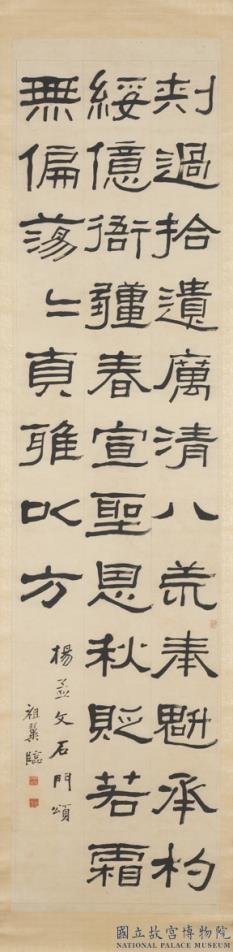 刾過拾遺厲清八荒奉魁承杓
綏億衙彊春宣聖恩秋貶若霜
無偏蕩二貞雅以方
楊孟文石門頌
祖棻臨
國立故宮博物院
NATIONAL PALACE MUSEUM